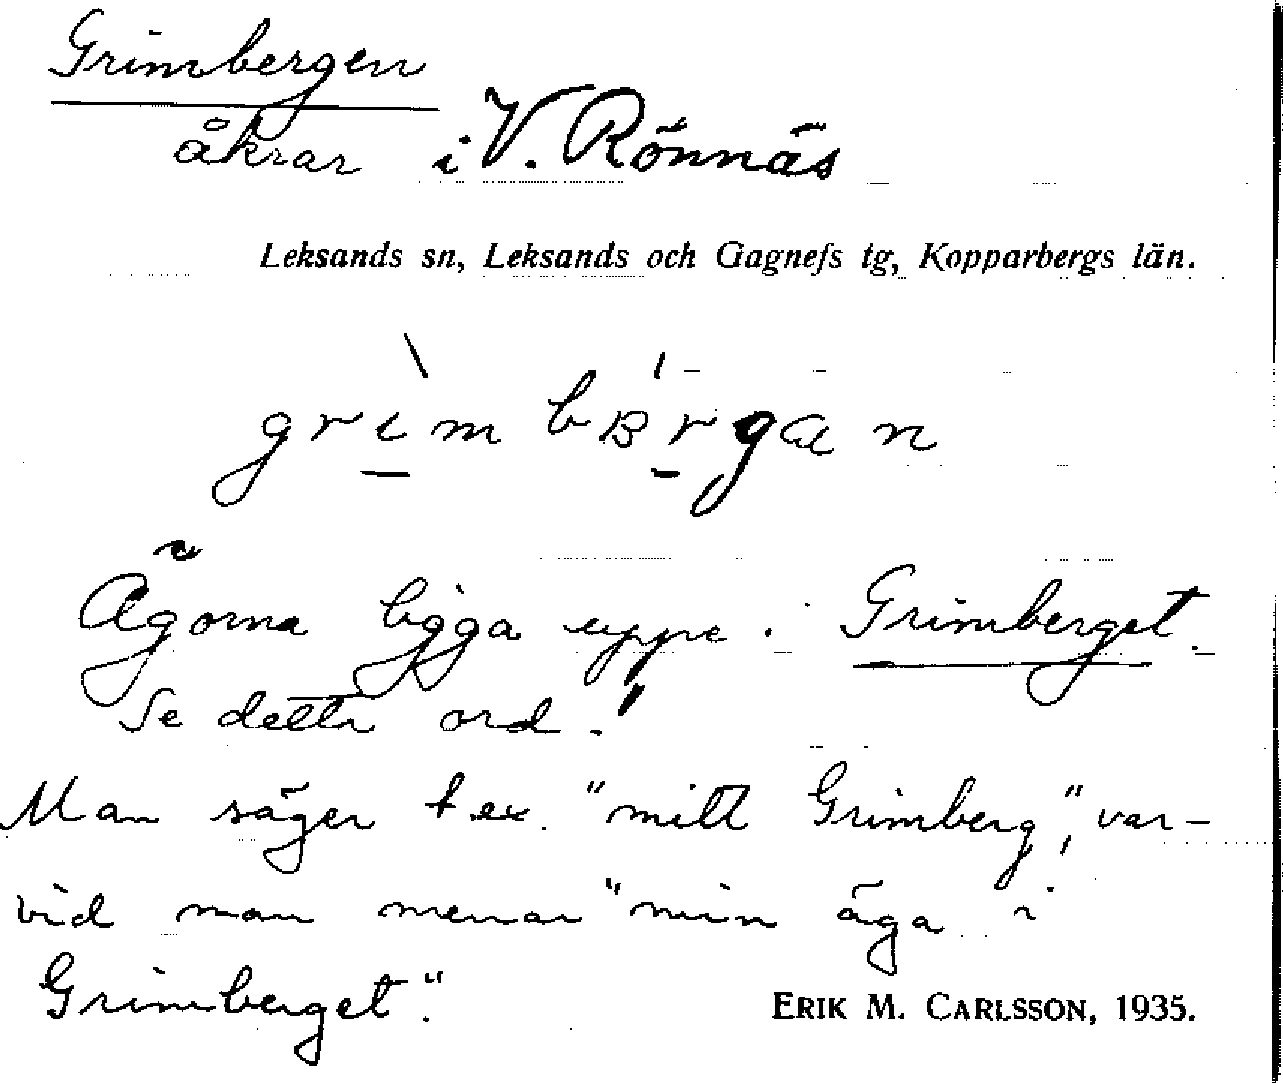 Grimbergen
åkrar i V. Rönnäs
Leksands sn, Leksands och Gagnefs tg, Kopparbergs län.
grìm bʙ́rgan
Ägorna ligga uppe i Grimberget.
Se detta ord!
Man säger t.ex. "mitt Grimberg", var-
vid man menar "min äga i
Grimberget".
ERIK M. CARLSSON, 1935.